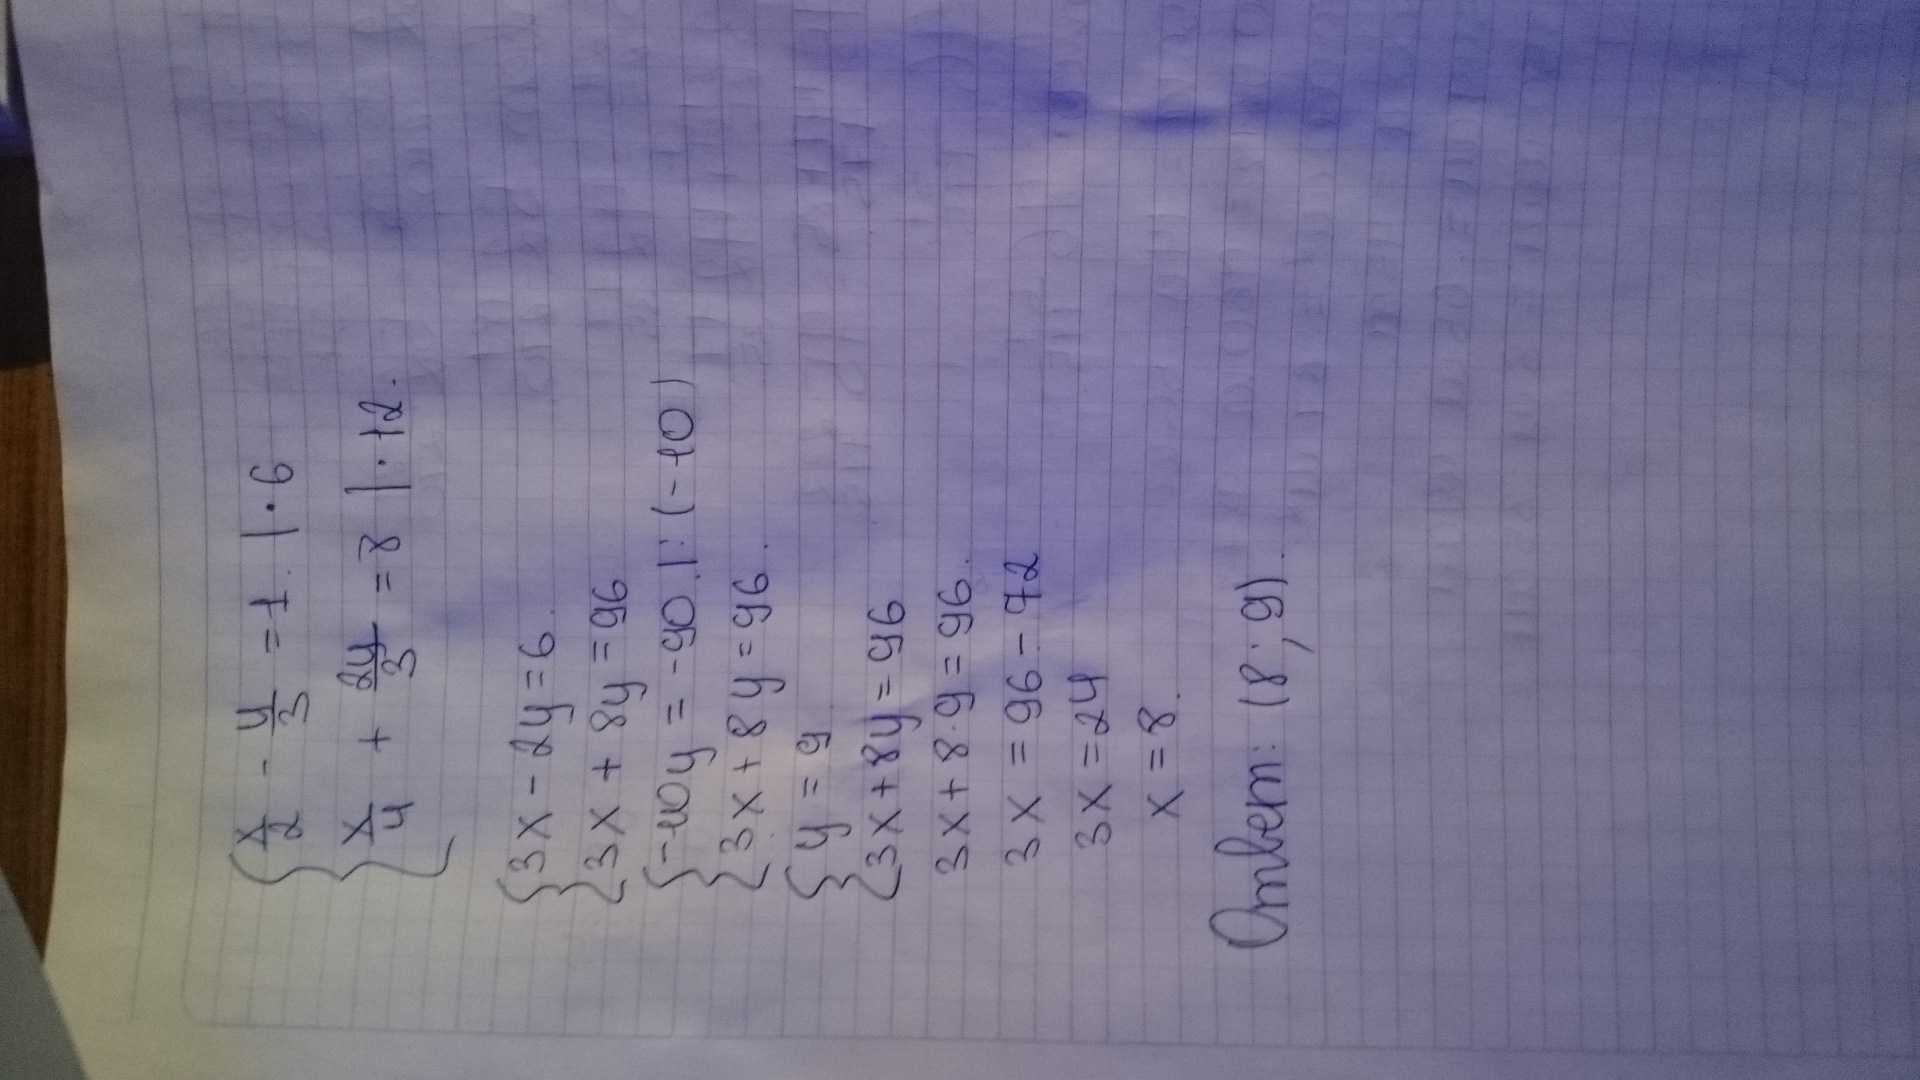 { x/2 - y/3 = 1. | · 6
{ x/4 + 2y/3 = 8 | · 12.
{ 3x - 2y = 6.
{ 3x + 8y = 96
{ -10y = -90. | : (-10)
{ 3x + 8y = 96.
{ y = 9
{ 3x + 8y = 96
3x + 8·9 = 96.
3x = 96 - 72
3x = 24
x = 8.
Ответ: (8; 9).